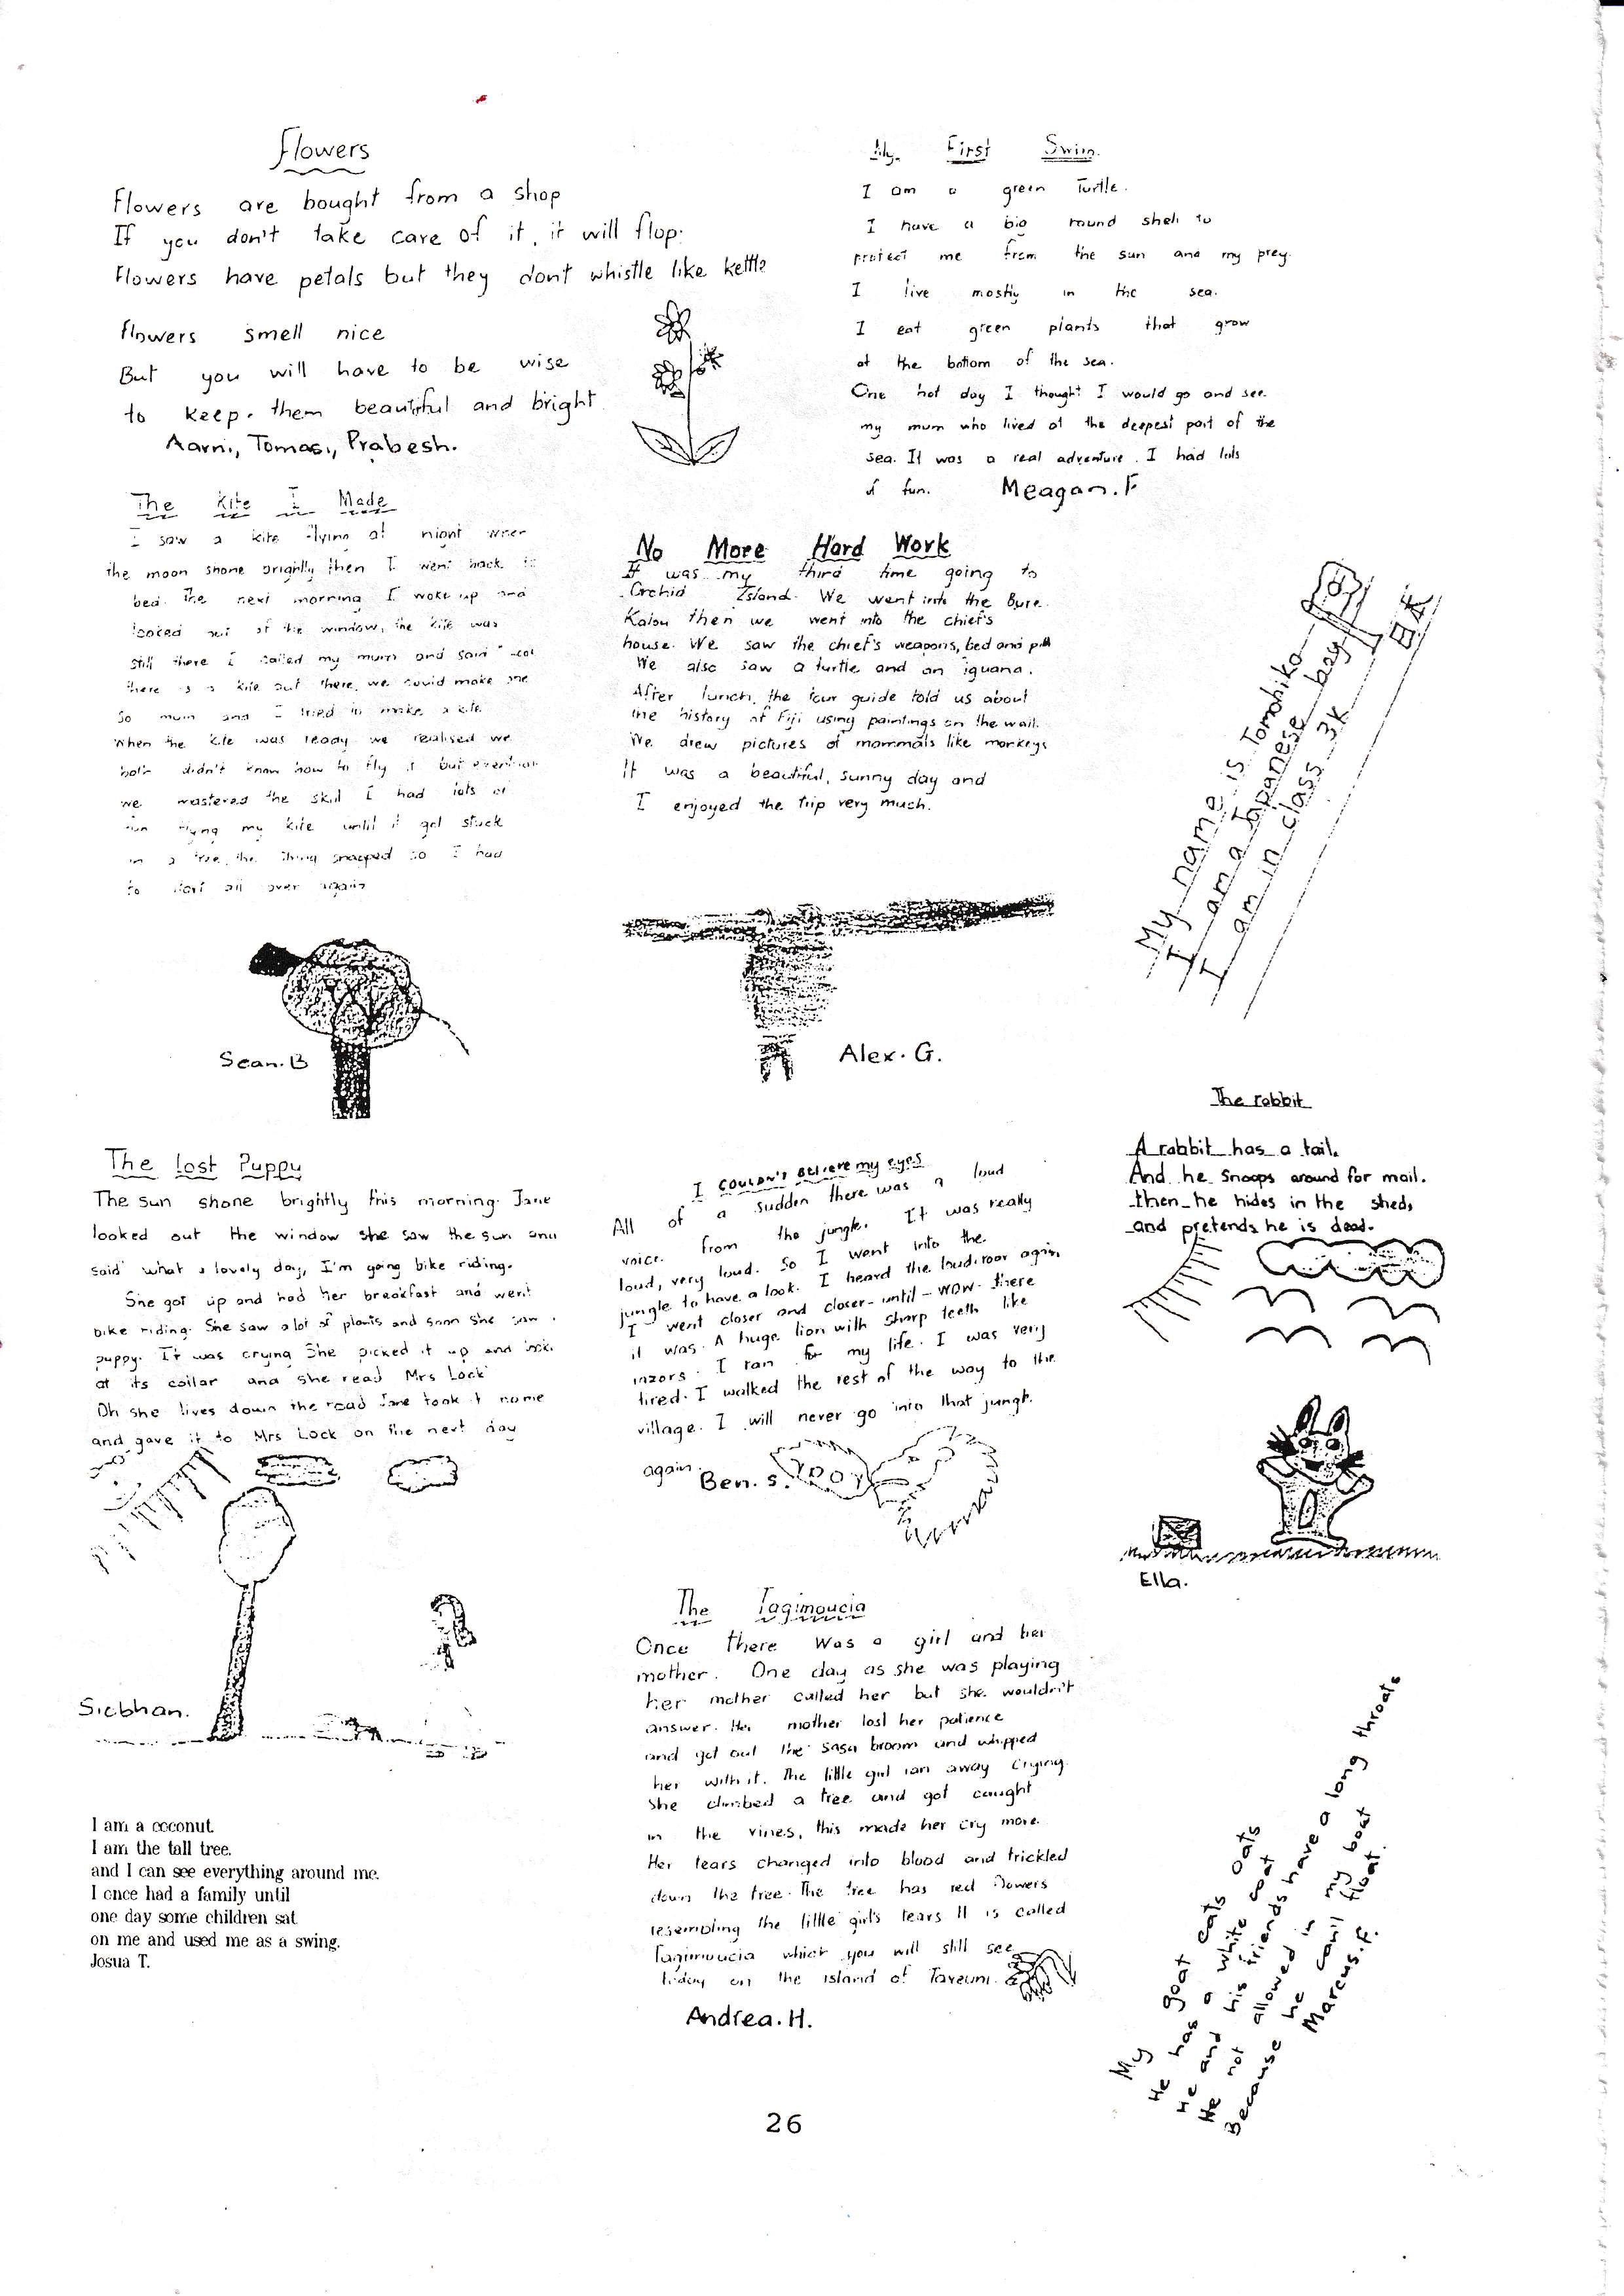 Flowers
Flowers are bought from a shop
If you don't take care of it, it will flop.
Flowers have petals but they dont whistle like kettle
Flowers smell nice
But you will have to be wise
to keep. them beautiful and bright
Aarni, Tomasi, Prabesh.
My First Swim.
I am a green Turtle.
I have a big round shell to
protect me from the sun and my prey.
I live mostly in the sea.
I eat green plants that grow
at the bottom of the sea.
One hot day I thought I would go and see
my mum who lived at the deepest part of the
sea. It was a real adventure. I had lots
of fun. Meagan. F
The Kite I Made
I saw a kite flying at night when
the moon shone brightly then I went back to
bed. The next morning I woke up and
looked out of the window, the kite was
still there I called my mum and said
there is a kite out there, we could make one
So mum and I tried to make a kite
When the kite was ready we realised we
both didn't know how to fly it but
we mastered the skill I had lots of
fun flying my kite until it got stuck
in a tree, the string snapped so I had
to start all over again
Sean. B
No More Hard Work
It was my third time going to
Orchid Island. We went into the Bure
Kalou then we went into the chief's
house. We saw the chief's weapons, bed and
We also saw a turtle and an iguana.
After lunch, the tour guide told us about
the history of Fiji using paintings on the wall.
We drew pictures of mammals like monkeys
It was a beautiful, sunny day and
I enjoyed the trip very much.
Alex. G.
My name is Tomohiko
I am a Japanese boy
I am in class 3K
The Lost Puppy
The sun shone brightly this morning. Jane
looked out the window she saw the sun and
said what a lovely day, I'm going bike riding.
She got up and had her breakfast and went
bike riding. She saw a lot of plants and soon she saw
puppy. It was crying She picked it up and
at its collar and she read Mrs Lock
Oh she lives down the road Jane took it home
and gave it to Mrs Lock on the next day
Siobhan.
I COULDN'T Believe my eyes
All of a sudden there was a loud
voice from the jungle. It was really
loud, very loud. So I went into the
jungle to have a look. I heard the loud roar again
I went closer and closer - until - wow there
it was. A huge lion with sharp teeth like
razors. I ran for my life. I was very
tired. I walked the rest of the way to the
village. I will never go into that jungle
again.
Ben. S.
The rabbit
A rabbit has a tail.
And he snoops around for mail.
then he hides in the shed,
and pretends he is dead.
Ella.
The Tagimoucia
Once there was a girl and her
mother. One day as she was playing
her mother called her but she wouldn't
answer. Her mother lost her patience
and got out the sasa broom and whipped
her with it. The little girl ran away crying.
She climbed a tree and got caught
in the vines, this made her cry more.
Her tears changed into blood and trickled
down the tree. The tree has red flowers
resembling the little girl's tears It is called
Tagimoucia which you will still see
today on the island of Taveuni.
Andrea. H.
I am a coconut
I am the tall tree.
and I can see everything around me.
I once had a family until
one day some children sat
on me and used me as a swing.
Josua T.
My goat eats oats
He has a white coat
He and his friends have a long throats
He not allowed in my boat
Because he can't float.
Marcus. F.
26